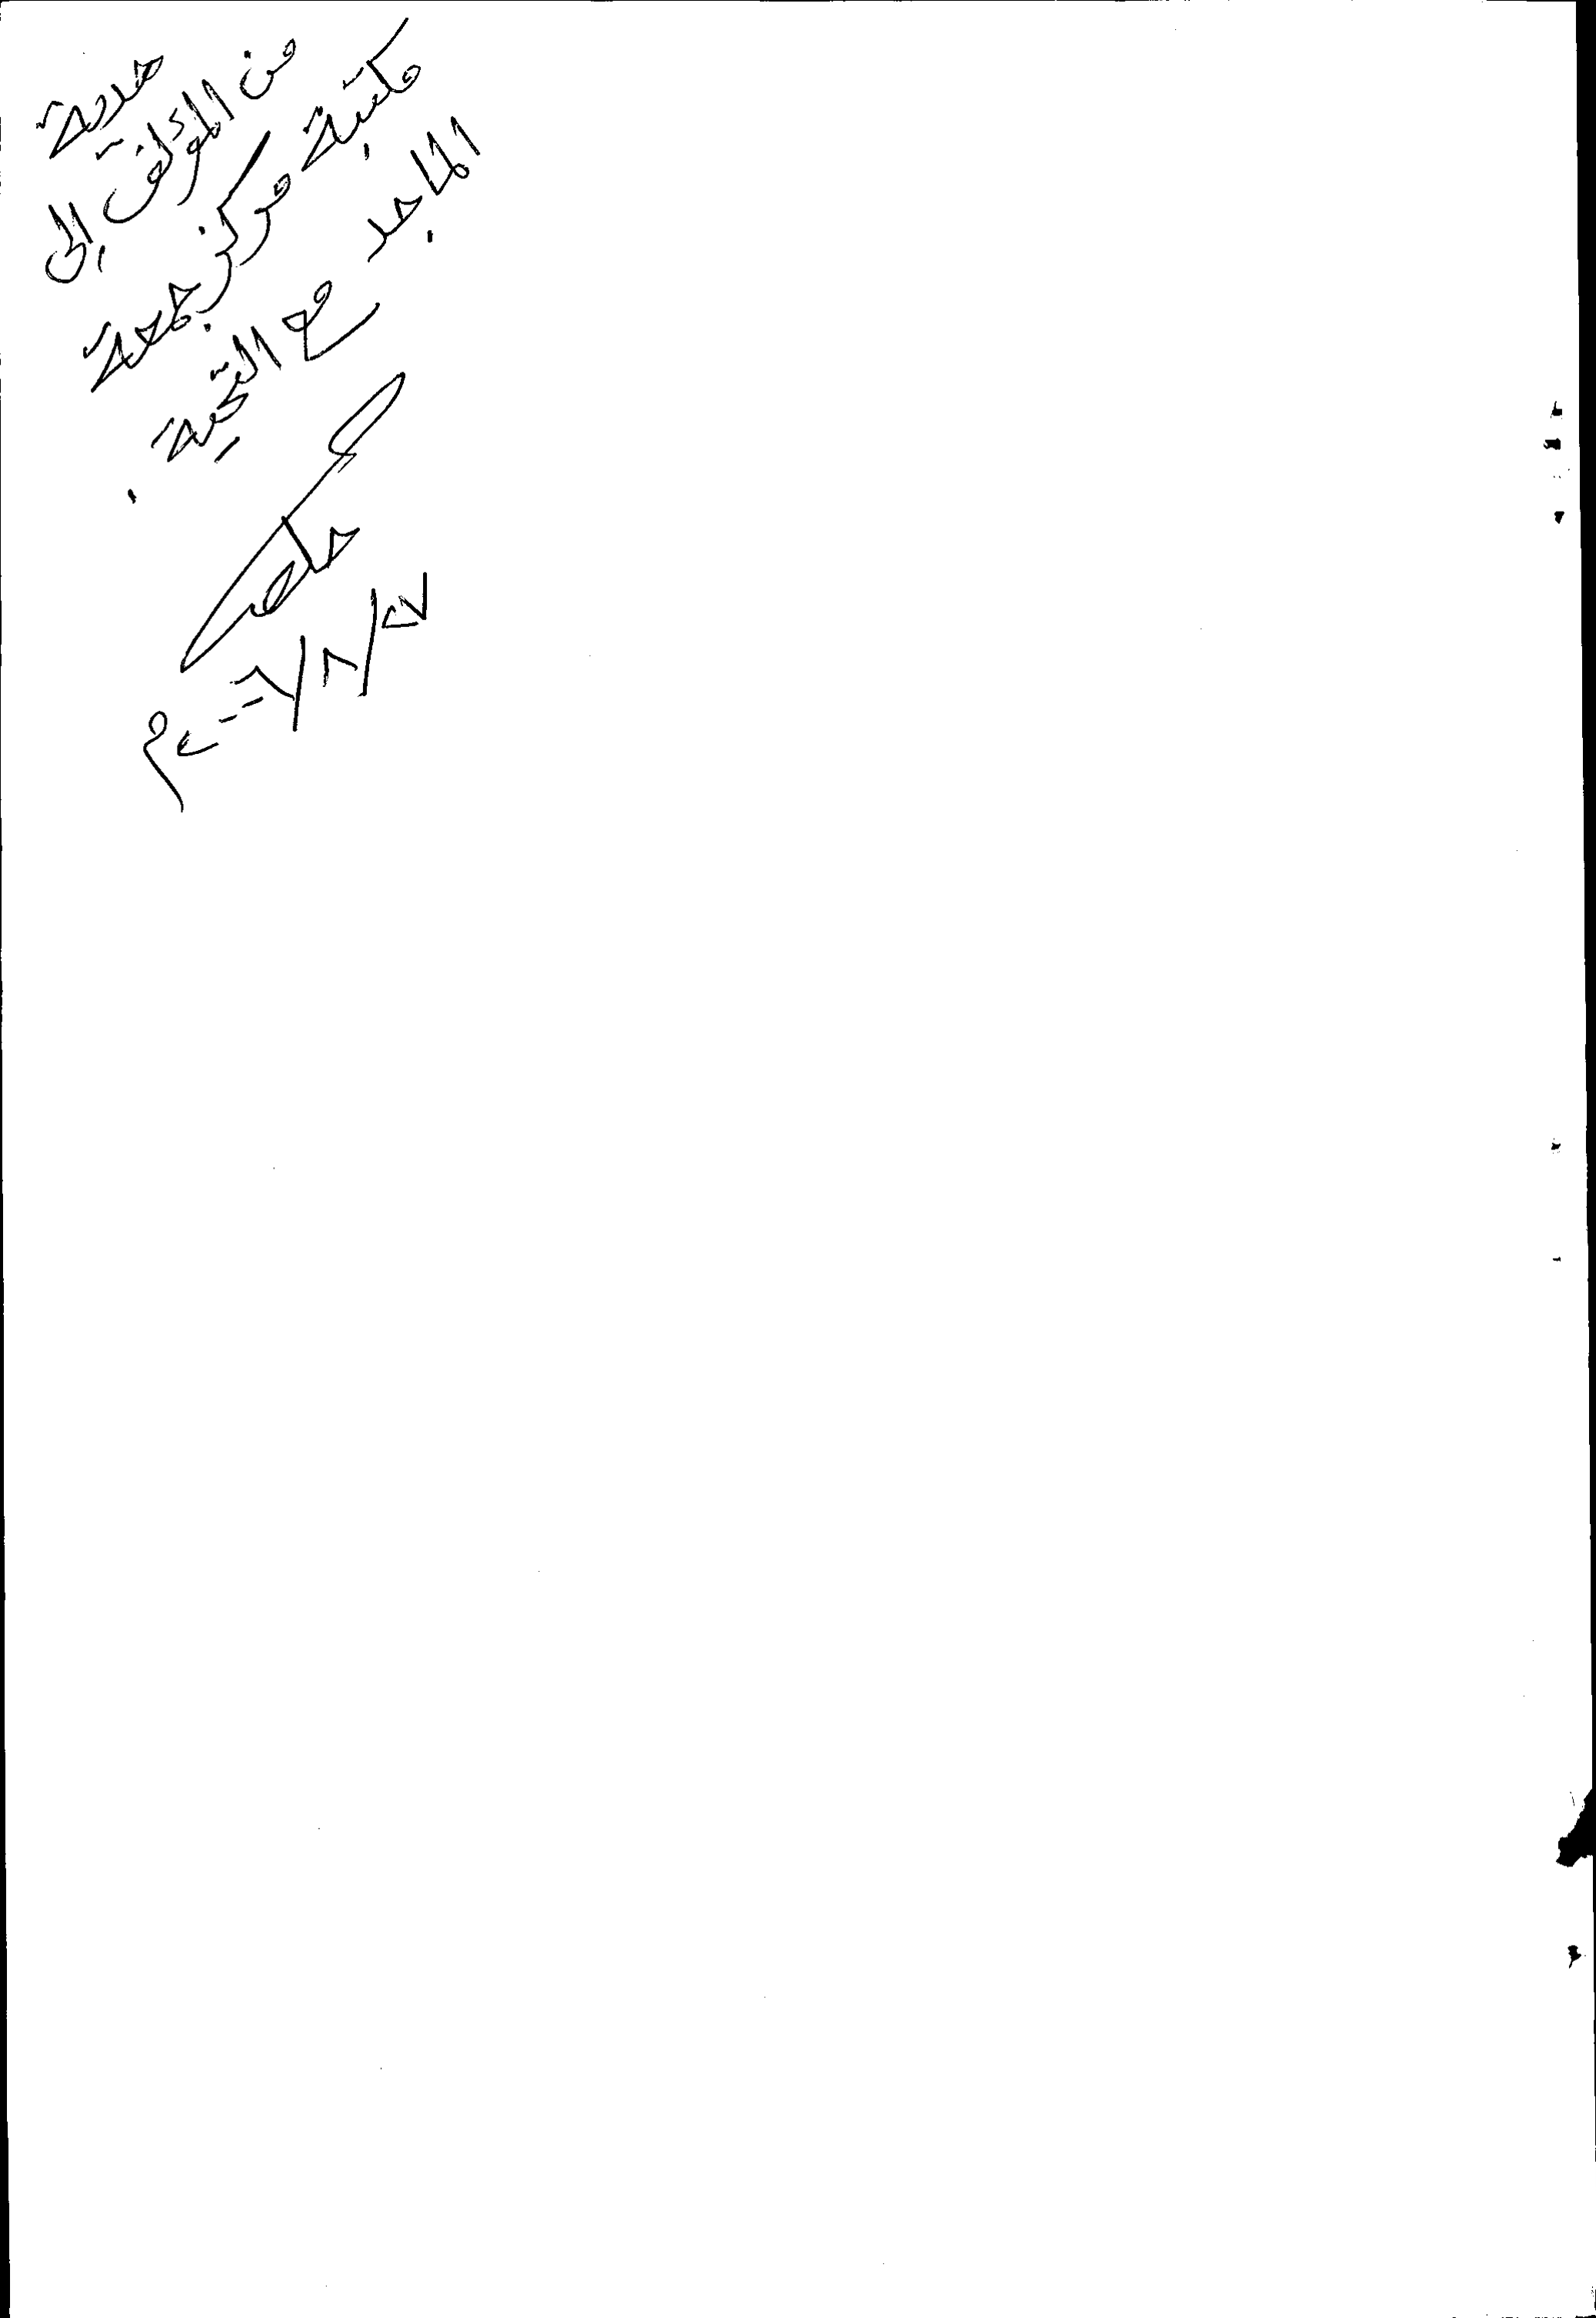 هدية
من المؤلف إلى
مكتبة مركز جمعة
الماجد
مع التحية .
٢٧/٨/٢٠٠٦م